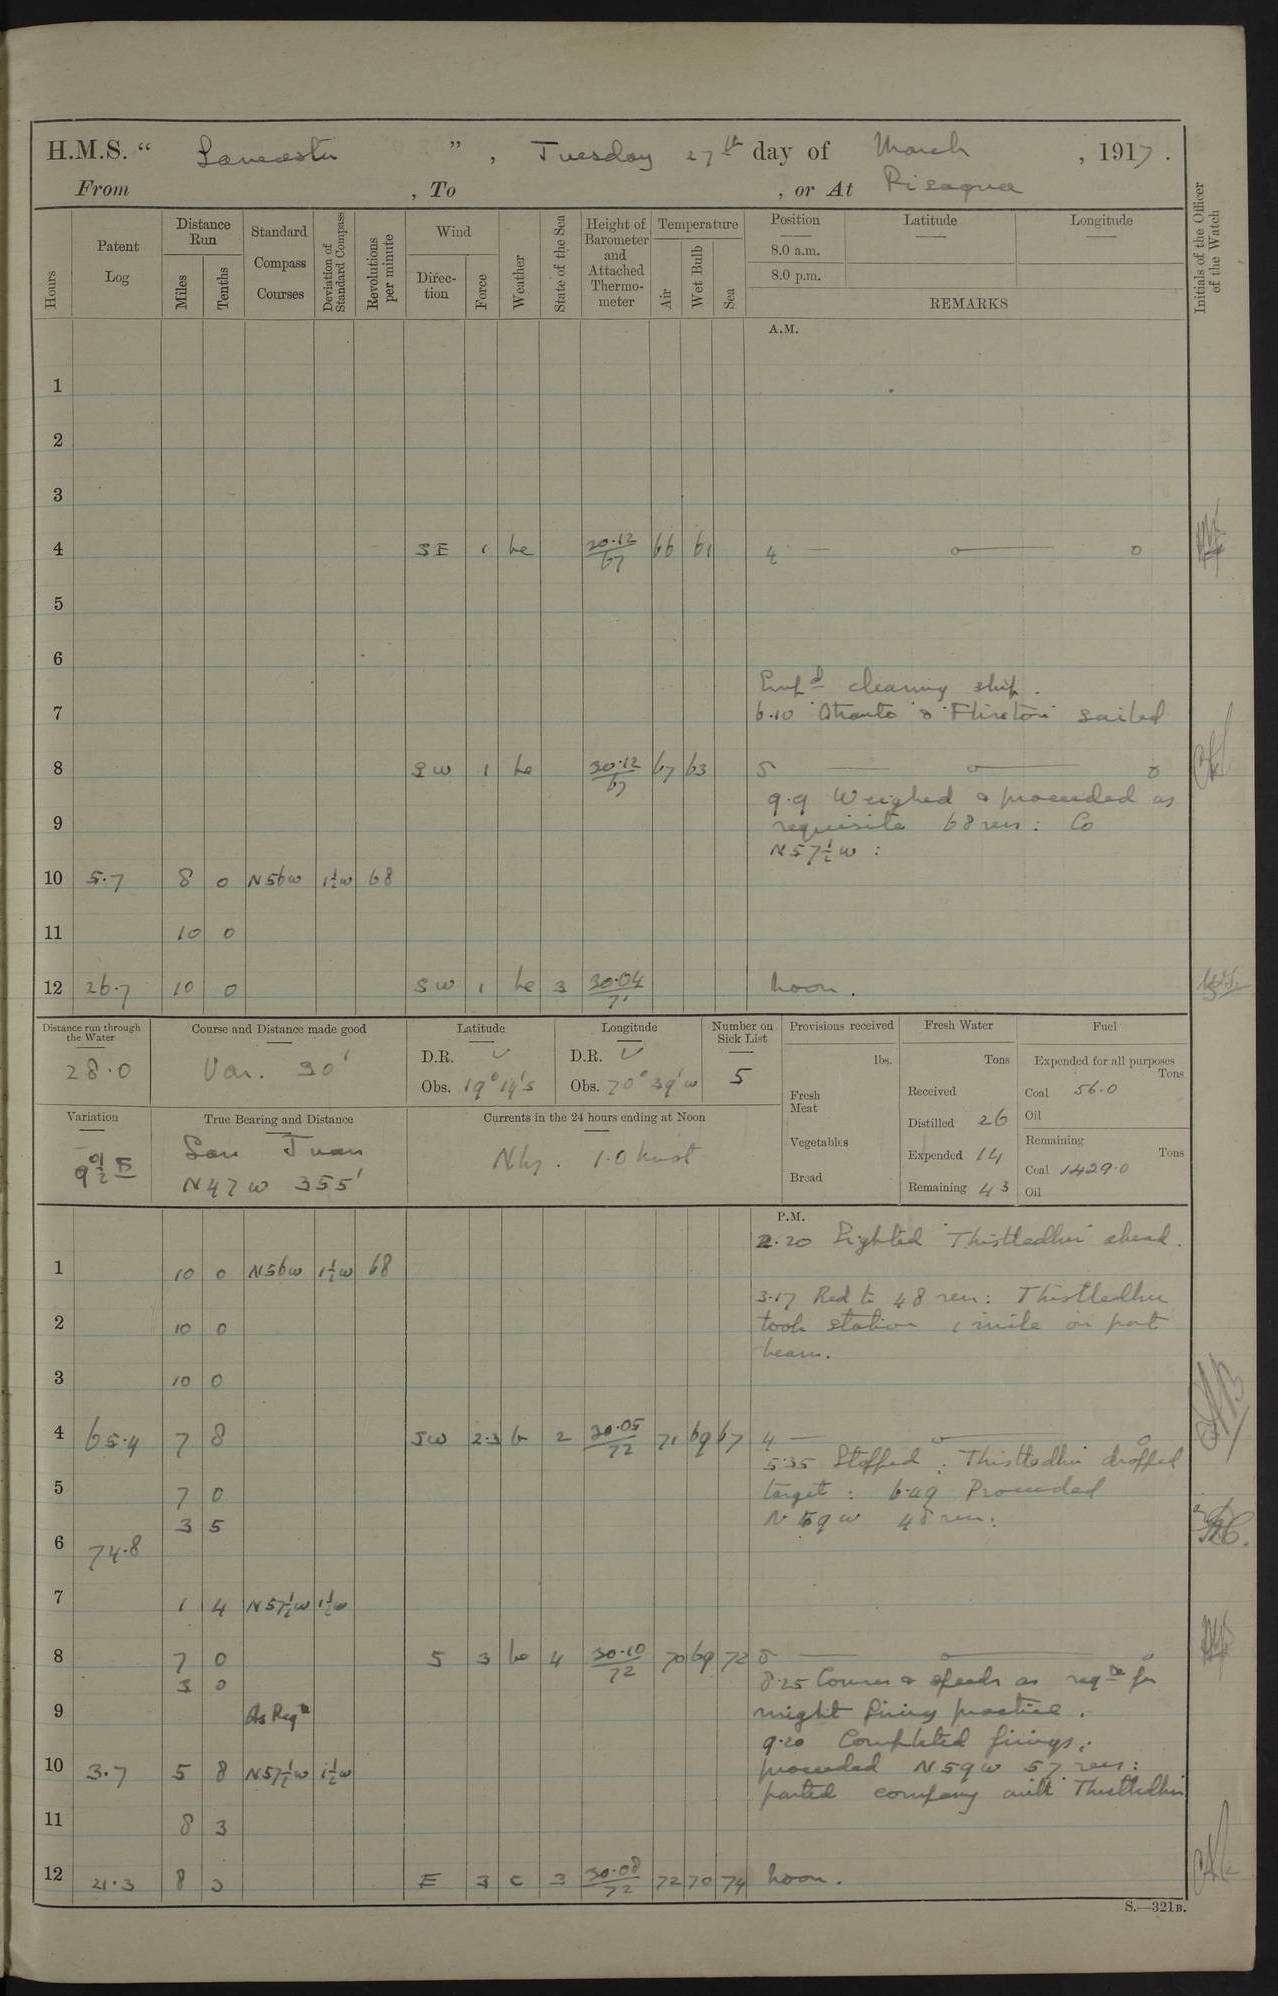 H.M.S. “ Lancaster ” , Tuesday 27th day of March , 1917.
From , To , or At Pisagua
Hours
Patent Log
Distance Run
Miles
Tenths
Standard Compass Courses
Deviation of Standard Compass
Revolutions per minute
Wind
Direction
Force
Weather
State of the Sea
Height of Barometer and Attached Thermometer
Temperature
Air
Wet Bulb
Sea
Position
Latitude
Longitude
8.0 a.m.
8.0 p.m.
REMARKS
Initials of the Officer of the Watch
A.M.
1
2
3
4 SE 1 bc 30.12/67 66 61 4
5
6
Empd cleaning ship.
7 6.10 "Otranto" & "Flirston" sailed
8 SW 1 bc 30.12/67 67 63 8
9.9 Weighed & proceeded as
9 requisite 68 revs: Co
N57½W :
10 5.7 8 0 N56W 1½W 68
11 10 0
12 26.7 10 0 SW 1 bc 3 30.04/71 Noon.
Distance run through the Water
28.0
Course and Distance made good
Var. 30'
Latitude
D.R.
Obs. 19°19'S
Longitude
D.R.
Obs. 70°39'W
Number on Sick List
5
Provisions received
lbs.
Fresh Meat
Vegetables
Bread
Fresh Water
Tons
Received
Distilled 26
Expended 14
Remaining 43
Fuel
Expended for all purposes
Tons
Coal 56.0
Oil
Remaining
Tons
Coal 1429.0
Oil
Variation
9½°E
True Bearing and Distance
San Juan
N47W 355'
Currents in the 24 hours ending at Noon
Nly. 1.0 knot
P.M.
2.20 Sighted "Thistledhu" ahead.
1 10 0 N56W 1½W 68
3.17 Red to 48 rev: Thistledhu
2 10 0 took station 1 mile on port
beam.
3 10 0
4 65.4 7 8 SW 2.3 b 2 30.05/72 71 69 67 4
5.35 Stopped : Thistledhu dropped
5 7 0 target : 6.49 Proceeded
3 5 N59W 48 rev:
6 74.8
7 1 4 N57½W 1½W
8 7 0 S 3 bc 4 30.10/72 70 69 72 8
3 0 8.25 Courses & speeds as reqte for
9 As Reqte night firing practice.
9.20 Completed firings;
10 3.7 5 8 N57½W 1½W proceeded N59W 57 revs:
parted company with "Thistledhu"
11 8 3
12 21.3 8 0 E 3 c 3 30.08/72 72 70 74 Noon.
S.—321B.